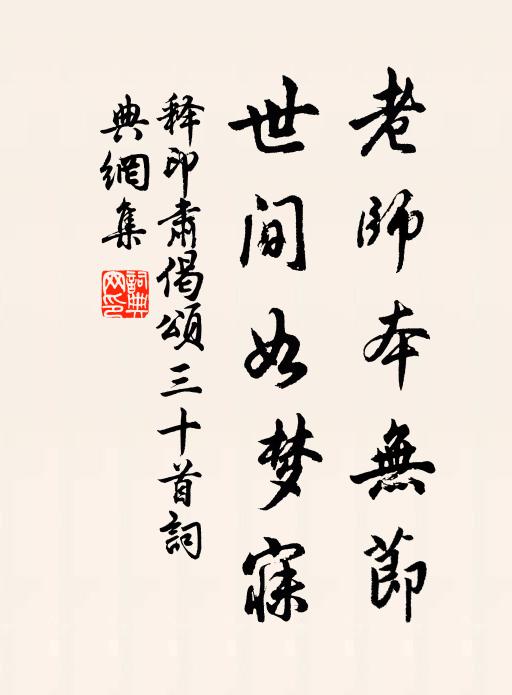 老師本無節
世间如梦寐
释印肃偈頌三十首詞
典網集
詞典网印